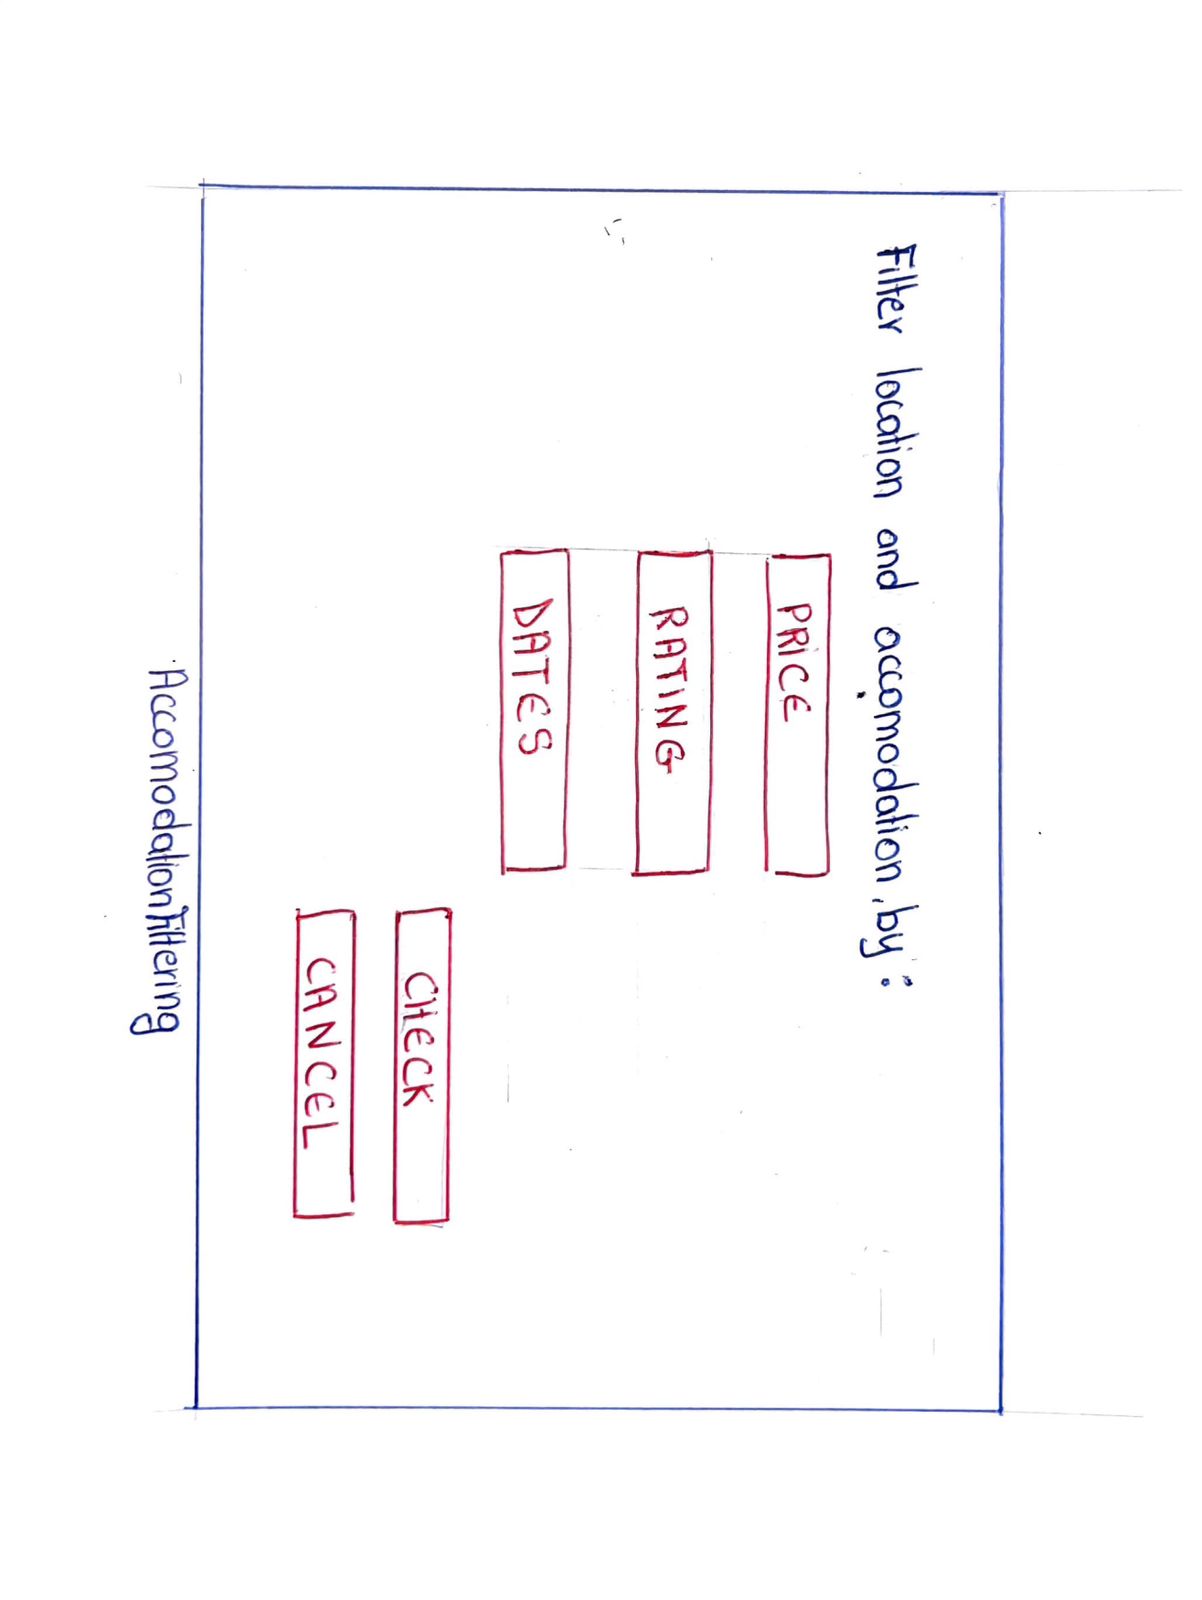 Filter location and accomodation, by:
PRICE
RATING
DATES
CHECK
CANCEL
AccomodationFiltering